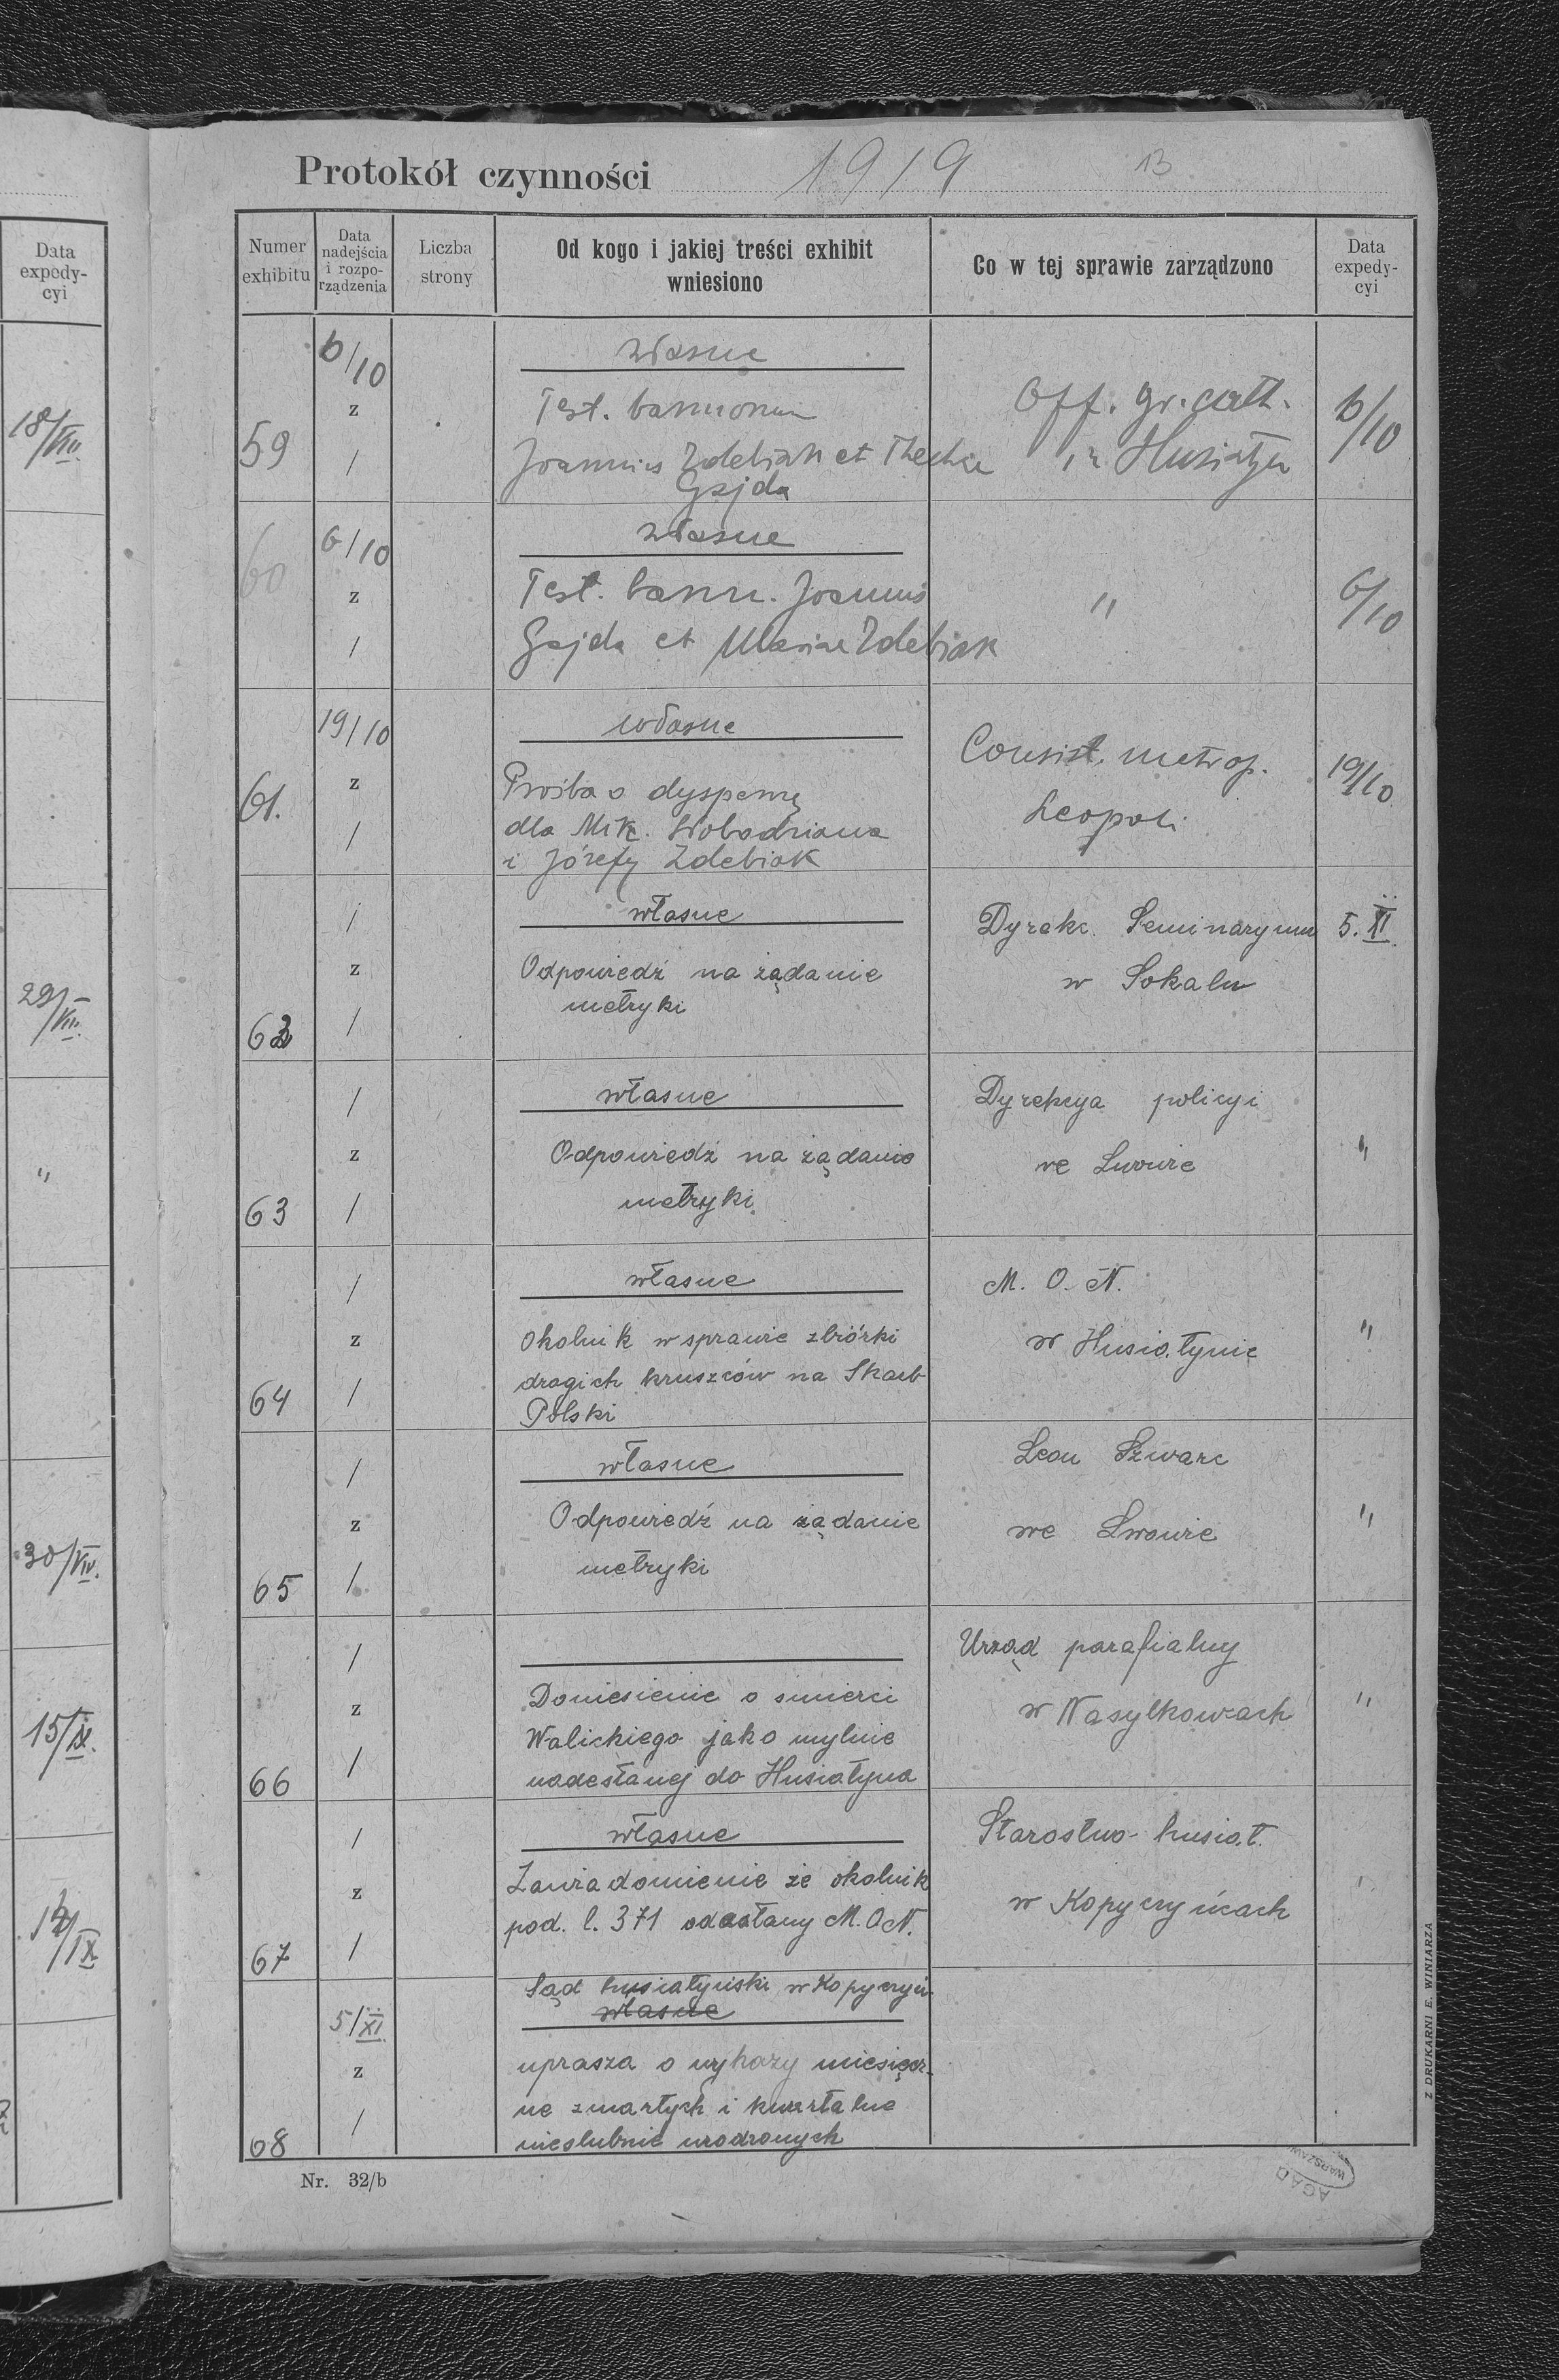 Data
expedy-
cyi
18/VIII.
29/VIII.
"
30/VIII.
15/IX.
/IX
Protokół czynności 1919 13
Numer
exhibitu
Data
nadejścia
i rozpo-
rządzenia
Liczba
strony
Od kogo i jakiej treści exhibit
wniesiono
Co w tej sprawie zarządzono
Data
expedy-
cyi
59
6/10
z
/
własne
Test. bannorum
Joannis Zdebiak et Theclae
Gajda
Off. gr. cath.
in Husiatyn
6/10
60
6/10
z
/
własne
Test. bann. Joannis
Gajda et Mariae Zdebiak
"
6/10
61.
19/10
z
/
własne
Prośba o dyspenzę
dla Mik.
i Józefy Zdebiak
Consist. metrop.
Leopoli
19/10
62
/
z
/
własne
Odpowiedź na żądanie
metryki
Dyrekc. Seminaryum
w Sokalu
5. XI.
63
/
z
/
własne
Odpowiedź na żądanie
metryki.
Dyrekcya policyi
we Lwowie
"
64
/
z
/
własne
Okolnik w sprawie zbiórki
drogich kruszców na Skarb
Polski
M. O. N.
w Husiatynie
"
65
/
z
/
własne
Odpowiedź na żądanie
metryki
Leon Szwarc
we Lwowie
"
66
/
z
/
Doniesienie o smierci
Walickiego jako mylnie
nadesłanej do Husiatyna
Urząd parafialny
w Wasylkowcach
"
67
/
z
/
własne
Zawiadomienie że okolnik
pod. l. 371 odesłany M. O. N.
Starostwo husiat.
w Kopyczyńcach
'
68
5/XI.
z
/
Sąd husiatyński w Kopyczyń.
własne
uprasza o wykazy miesięcz-
ne zmarłych i kwartalne
nieslubnie urodzonych
Nr. 32/b
Z DRUKARNI E. WINIARZA
AGAD
WARSZAWA